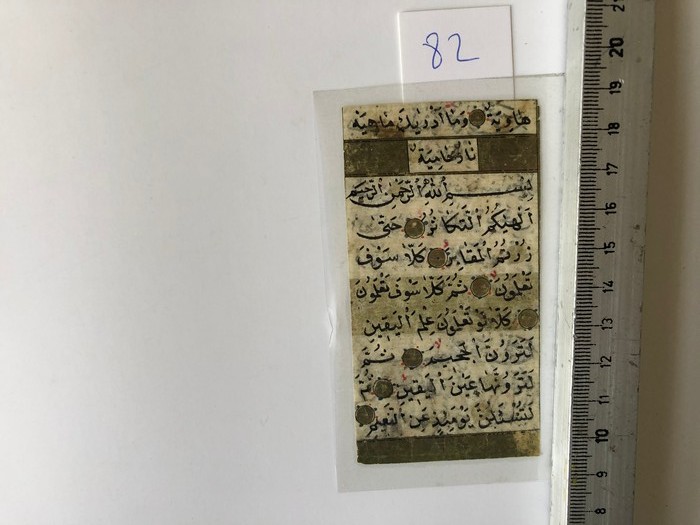 82
هَاوِيَةٌ وَمَا أَدْرٰيكَ مَاهِيَهْ
نَارٌ حَامِيَةٌ
بِسْمِ اللهِ الرَّحْمٰنِ الرَّحِيمِ
اَلْهٰيكُمُ التَّكَاثُرُ حَتّٰى
زُرْتُمُ الْمَقَابِرَ كَلَّا سَوْفَ
تَعْلَمُونَ ثُمَّ كَلَّا سَوْفَ تَعْلَمُونَ
كَلَّا لَوْ تَعْلَمُونَ عِلْمَ الْيَقِينِ
لَتَرَوُنَّ الْجَحِيمَ ثُمَّ
لَتَرَوُنَّهَا عَيْنَ الْيَقِينِ ثُمَّ
لَتُسْئَلُنَّ يَوْمَئِذٍ عَنِ النَّعِيمِ
21
20
19
18
17
16
15
14
13
12
11
10
9
8